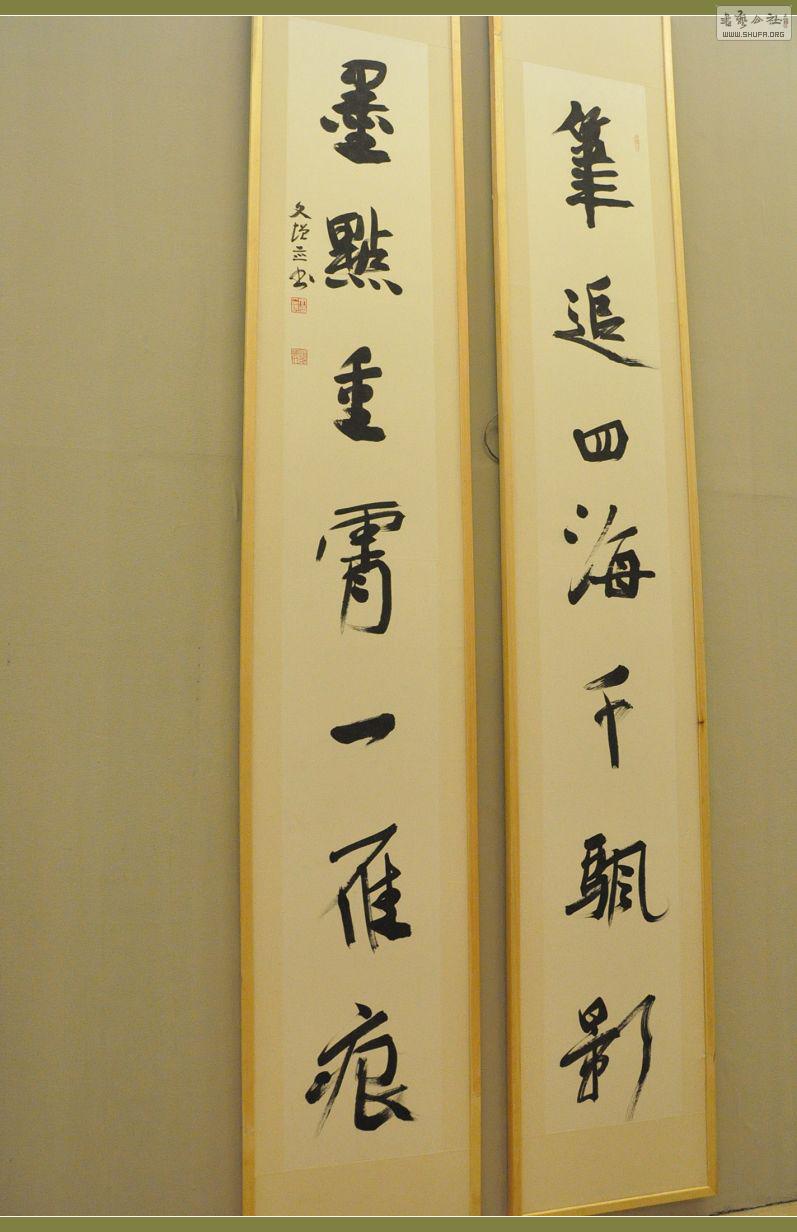 筆追四海千颿影
墨點重霄一雁痕
書藝公社
WWW.SHUFA.ORG